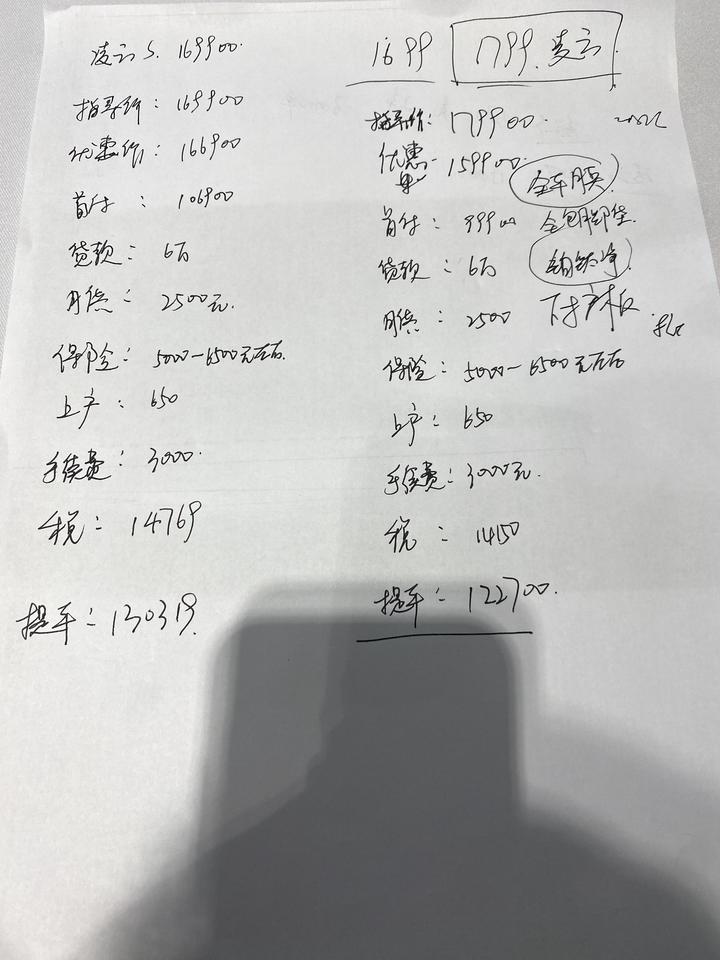 凌云S. 169900.
指导价: 169900
优惠价: 166900
首付: 106900
贷款: 6万
月供: 2500元.
保险: 5000-6500元左右.
上户: 650
手续费: 3000.
税: 14769
提车: 130319.
1699 1799. 凌云.
指导价: 179900.
优惠 159900.
全车膜.
首付: 99900 全包脚垫.
贷款: 6万
月供: 2500 下护板.
保险: 5000-6500元左右
上户: 650
手续费: 3000元.
税: 14150
提车: 122700.